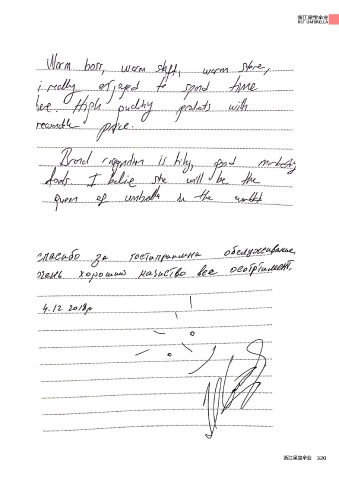 浙江星宝伞业
RST UMBRELLA
Warm boss, warm staff, warm store,
i really enjoyed to spend time
here. High quality products with
reasonable price.
Brand recognition is high, good marketing
tools. I belie she will be the
queen of umbrella in the world
спасибо за гостаприимна обслуживание,
очень хороший качество все
4.12 2018г
浙江星宝伞业 320